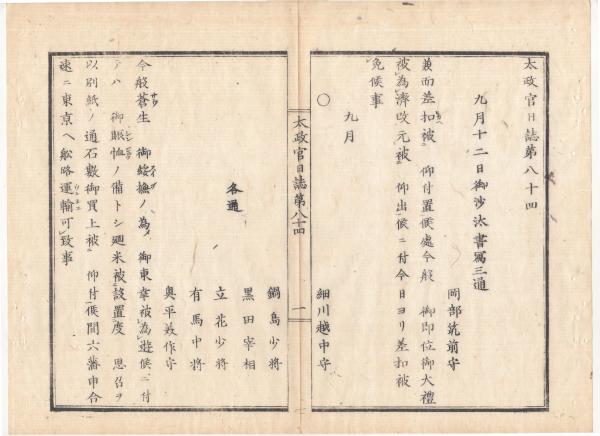 太政官日誌第八十四
九月十二日御沙汰書寫三通
岡部筑前守
兼而差扣被 仰付置候處今般 御即位御大禮
被為濟改元被 仰出候ニ付今日ヨリ差扣被
免候事
九月
〇
細川越中守
太政官日誌第八十四
一
鍋島少將
黒田宰相
立花少將
有馬中將
奥平美作守
各通
今般蒼生 御綏撫ノ為 御東幸被為遊候ニ付
テハ 御賑恤ノ備トシ廻米被設置度 思召ヲ
以別紙ノ通石數御買上被 仰付候間六藩申合
速ニ東京ヘ舩路運輸可致事